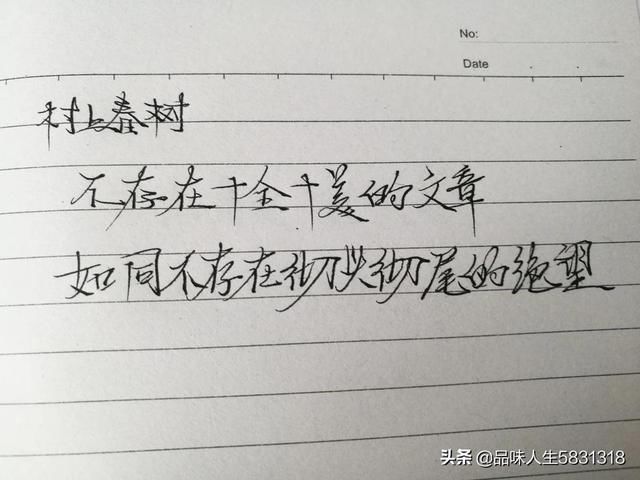 No:
Date
村上春树
不存在十全十美的文章
如同不存在彻头彻尾的绝望
头条 @品味人生5831318